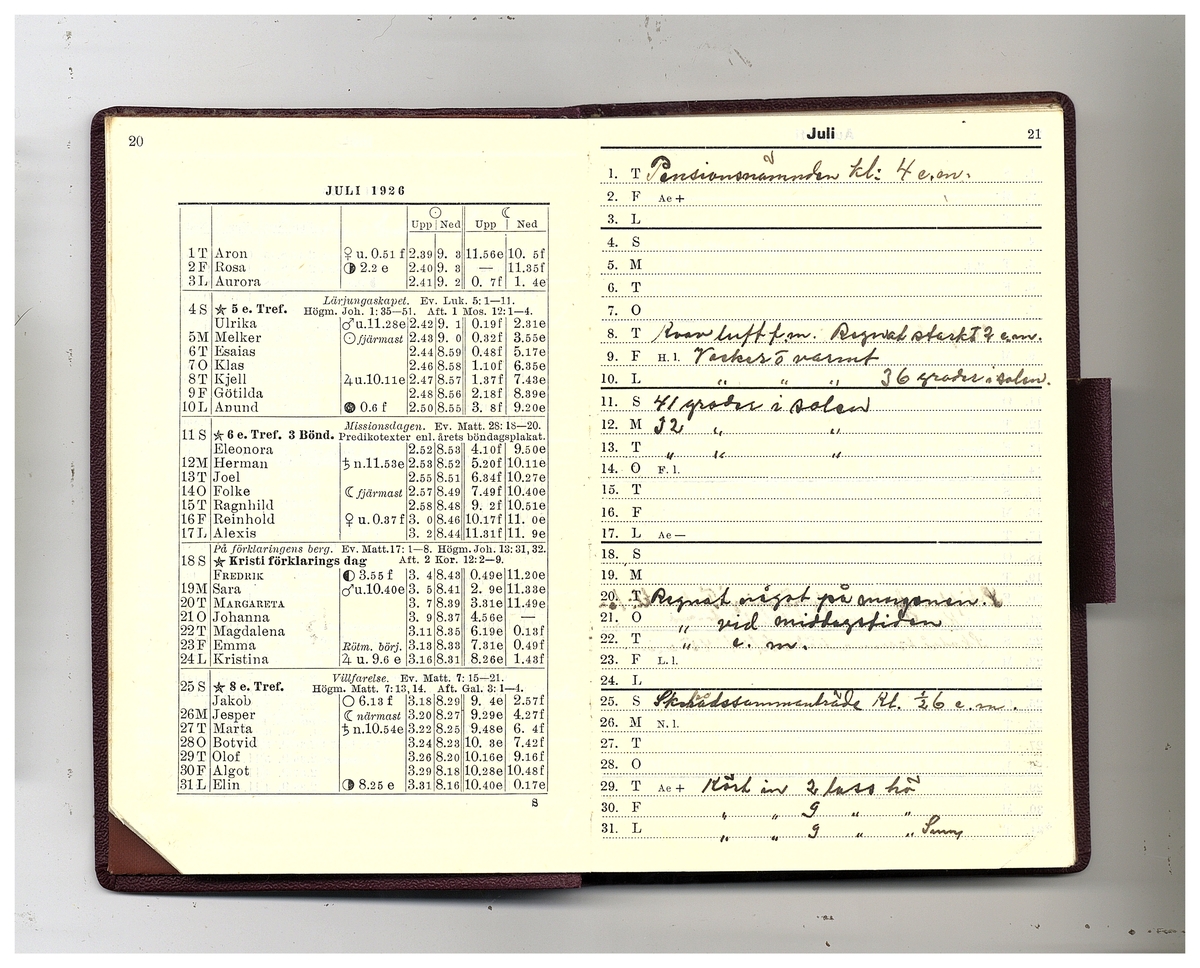 20
JULI 1926
☉ ☾
Upp Ned Upp Ned
1 T Aron ♀ u. 0.51 f 2.39 9. 3 11.56e 10. 5f
2 F Rosa ◑ 2.2 e 2.40 9. 3 — 11.35f
3 L Aurora 2.41 9. 2 0. 7f 1. 4e
Lärjungaskapet. Ev. Luk. 5: 1—11.
4 S ★ 5 e. Tref. Högm. Joh. 1: 35—51. Aft. 1 Mos. 12: 1—4.
Ulrika ♂ u.11.28e 2.42 9. 1 0.19f 2.31e
5 M Melker ☉ fjärmast 2.43 9. 0 0.32f 3.55e
6 T Esaias 2.44 8.59 0.48f 5.17e
7 O Klas 2.46 8.58 1.10f 6.35e
8 T Kjell ♃ u.10.11e 2.47 8.57 1.37f 7.43e
9 F Götilda 2.48 8.56 2.18f 8.39e
10 L Anund 0.6 f 2.50 8.55 3. 8f 9.20e
Missionsdagen. Ev. Matt. 28: 18—20.
11 S ★ 6 e. Tref. 3 Bönd. Predikotexter enl. årets böndagsplakat.
Eleonora 2.52 8.53 4.10f 9.50e
12 M Herman ♄ n.11.53e 2.53 8.52 5.20f 10.11e
13 T Joel 2.55 8.51 6.34f 10.27e
14 O Folke ☾ fjärmast 2.57 8.49 7.49f 10.40e
15 T Ragnhild 2.58 8.48 9. 2f 10.51e
16 F Reinhold ♀ u. 0.37 f 3. 0 8.46 10.17f 11. 0e
17 L Alexis 3. 2 8.44 11.31f 11. 9e
På förklaringens berg. Ev. Matt. 17: 1—8. Högm. Joh. 13: 31, 32.
18 S ★ Kristi förklarings dag Aft. 2 Kor. 12: 2—9.
FREDRIK ◐ 3.55 f 3. 4 8.43 0.49e 11.20e
19 M Sara ♂ u.10.40e 3. 5 8.41 2. 9e 11.33e
20 T MARGARETA 3. 7 8.39 3.31e 11.49e
21 O Johanna 3. 9 8.37 4.56e —
22 T Magdalena 3.11 8.35 6.19e 0.13f
23 F Emma Rötm. börj. 3.13 8.33 7.31e 0.49f
24 L Kristina ♃ u. 9.6 e 3.16 8.31 8.26e 1.43f
Villfarelse. Ev. Matt. 7: 15—21.
25 S ★ 8 e. Tref. Högm. Matt. 7: 13, 14. Aft. Gal. 3: 1—4.
Jakob ○ 6.13 f 3.18 8.29 9. 4e 2.57f
26 M Jesper ☾ närmast 3.20 8.27 9.29e 4.27f
27 T Marta ♄ n.10.54e 3.22 8.25 9.48e 6. 4f
28 O Botvid 3.24 8.23 10. 3e 7.42f
29 T Olof 3.26 8.20 10.16e 9.16f
30 F Algot 3.29 8.18 10.28e 10.48f
31 L Elin ◑ 8.25 e 3.31 8.16 10.40e 0.17e
8
Juli 21
1. T Pensionsnämnden kl: 4 e.m.
2. F Ae +
3. L
4. S
5. M
6. T
7. O
8. T Kvav luft f.m. Regnat starkt 2 e.m.
9. F H. l. Vackert o varmt
10. L " " " 36 grader i solen.
11. S 41 grader i solen
12. M 32 " "
13. T " " "
14. O F. l.
15. T
16. F
17. L Ae —
18. S
19. M
20. T Regnat något på morgonen.
21. O " vid middagstiden
22. T " e. m.
23. F L. l.
24. L
25. S kl. ½6 e.m.
26. M N. l.
27. T
28. O
29. T Ae + Kört in 2 lass hö
30. F " " 9 " "
31. L " " 9 " "